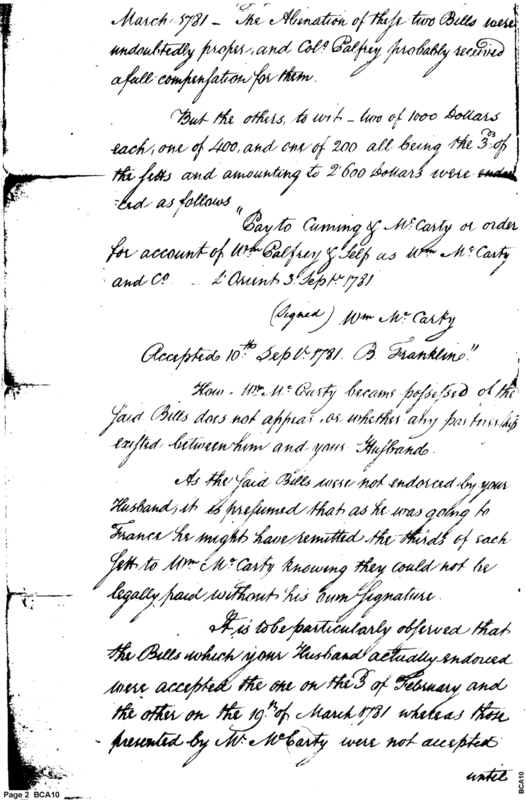 March 1781 – The Alienation of these two Bills were
undoubtedly proper, and Colo. Palfrey probably received
a full compensation for them.
But the others, to wit – two of 1000 Dollars
each, one of 400, and one of 200 all being the 3ds of
the setts and amounting to 2600 Dollars were endor
=ced as follows
"Pay to Cuming & McCarty or order
for account of Wm Palfrey & Self as Wm McCarty
and Co. L'Orient 3 Septr 1781
(Signed) Wm McCarty
Accepted 10th Septr 1781. B. Franklin"
How Wm McCarty became possessed of the
said Bills does not appear, or whether any partnership
existed between him and your Husband.
As the said Bills were not endorced by your
Husband, it is presumed that as he was going to
France he might have remitted the thirds of each
sett to Wm McCarty knowing they could not be
legally paid without his own Signature.
It is to be particularly observed that
the Bills which your Husband actually endorced
were accepted the one on the 3d of February and
the other on the 19th of March 1781 whereas those
presented by Mr McCarty were not accepted
until
Page 2 BCA10
BCA10